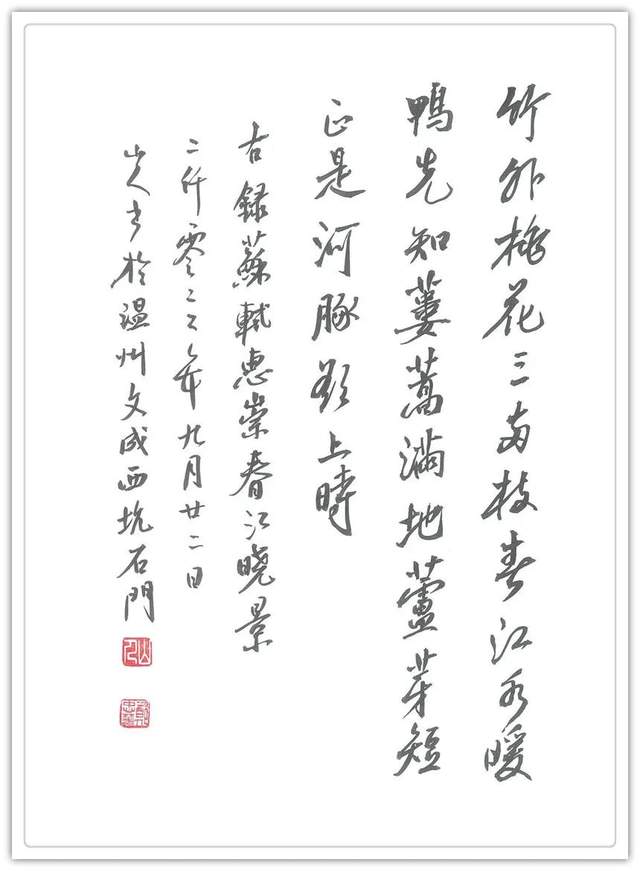 竹外桃花三两枝春江水暖
鴨先知蔞蒿滿地蘆芽短
正是河豚欲上時
右録蘇軾惠崇春江晓景
二仟零二二年九月廿二日
山人书於温州文成西坑石門
山人